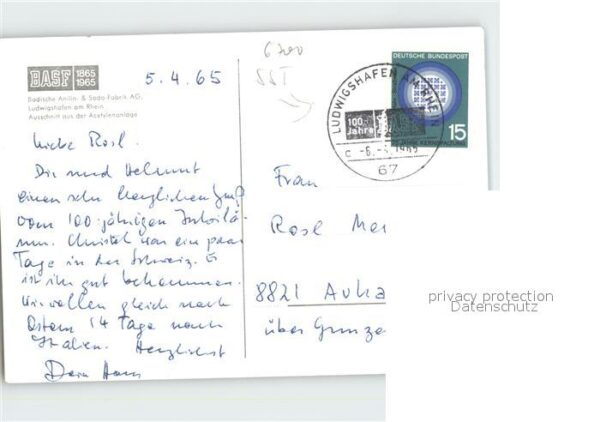 BASF 1865
1965
Badische Anilin- & Soda-Fabrik AG,
Ludwigshafen am Rhein
Ausschnitt aus der Acetylenanlage
6700
SST
5.4.65
Liebe Rosl.
Dir und Helmut
einen sehr herzlichen Gruß
vom 100-jährigen Jubilä-
um. Christel war ein paar
Tage in der Schweiz. Es
ist ihr gut bekommen.
Wir wollen gleich nach
Ostern 14 Tage nach
Italien. Herzlichst
Dein Hans
DEUTSCHE BUNDESPOST
15
LUDWIGSHAFEN AM RHEIN
100
Jahre BASF
c -6.-4.1965
67
Frau
Rosl Mei
8821 Auha
über Gunze
privacy protection
Datenschutz